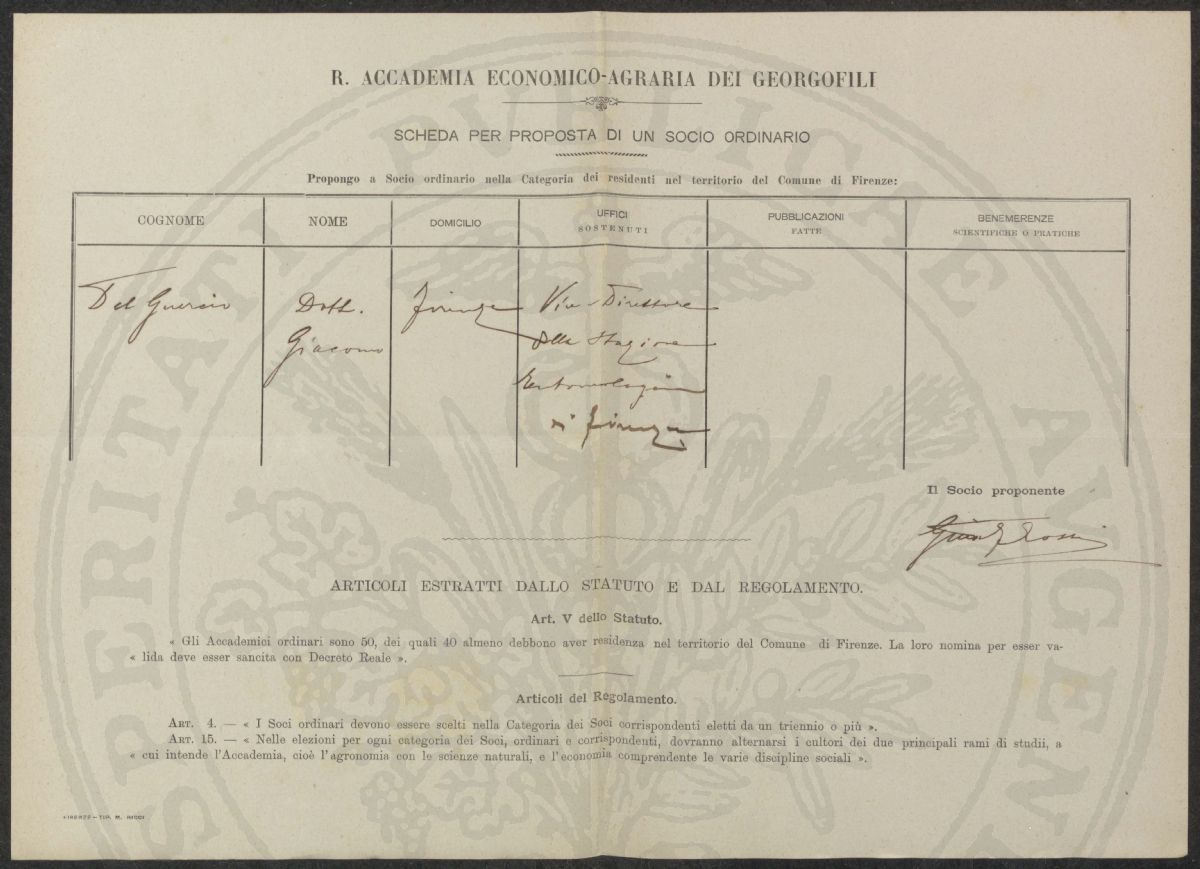 R. ACCADEMIA ECONOMICO-AGRARIA DEI GEORGOFILI
SCHEDA PER PROPOSTA DI UN SOCIO ORDINARIO
Propongo a Socio ordinario nella Categoria dei residenti nel territorio del Comune di Firenze:
COGNOME
NOME
DOMICILIO
UFFICI
SOSTENUTI
PUBBLICAZIONI
FATTE
BENEMERENZE
SCIENTIFICHE O PRATICHE
Del Guercio
Dott.
Giacomo
Firenze
Vice-Direttore
della Stazione
Entomologica
di Firenze
Il Socio proponente
ARTICOLI ESTRATTI DALLO STATUTO E DAL REGOLAMENTO.
Art. V dello Statuto.
« Gli Accademici ordinari sono 50, dei quali 40 almeno debbono aver residenza nel territorio del Comune di Firenze. La loro nomina per esser va-
« lida deve esser sancita con Decreto Reale ».
Articoli del Regolamento.
ART. 4. — « I Soci ordinari devono essere scelti nella Categoria dei Soci corrispondenti eletti da un triennio o più ».
ART. 15. — « Nelle elezioni per ogni categoria dei Soci, ordinari e corrispondenti, dovranno alternarsi i cultori dei due principali rami di studii, a
« cui intende l'Accademia, cioè l'agronomia con le scienze naturali, e l'economia comprendente le varie discipline sociali ».
FIRENZE - TIP. M. RICCI
PROSPERITATI PUBLICAE AVGENDAE